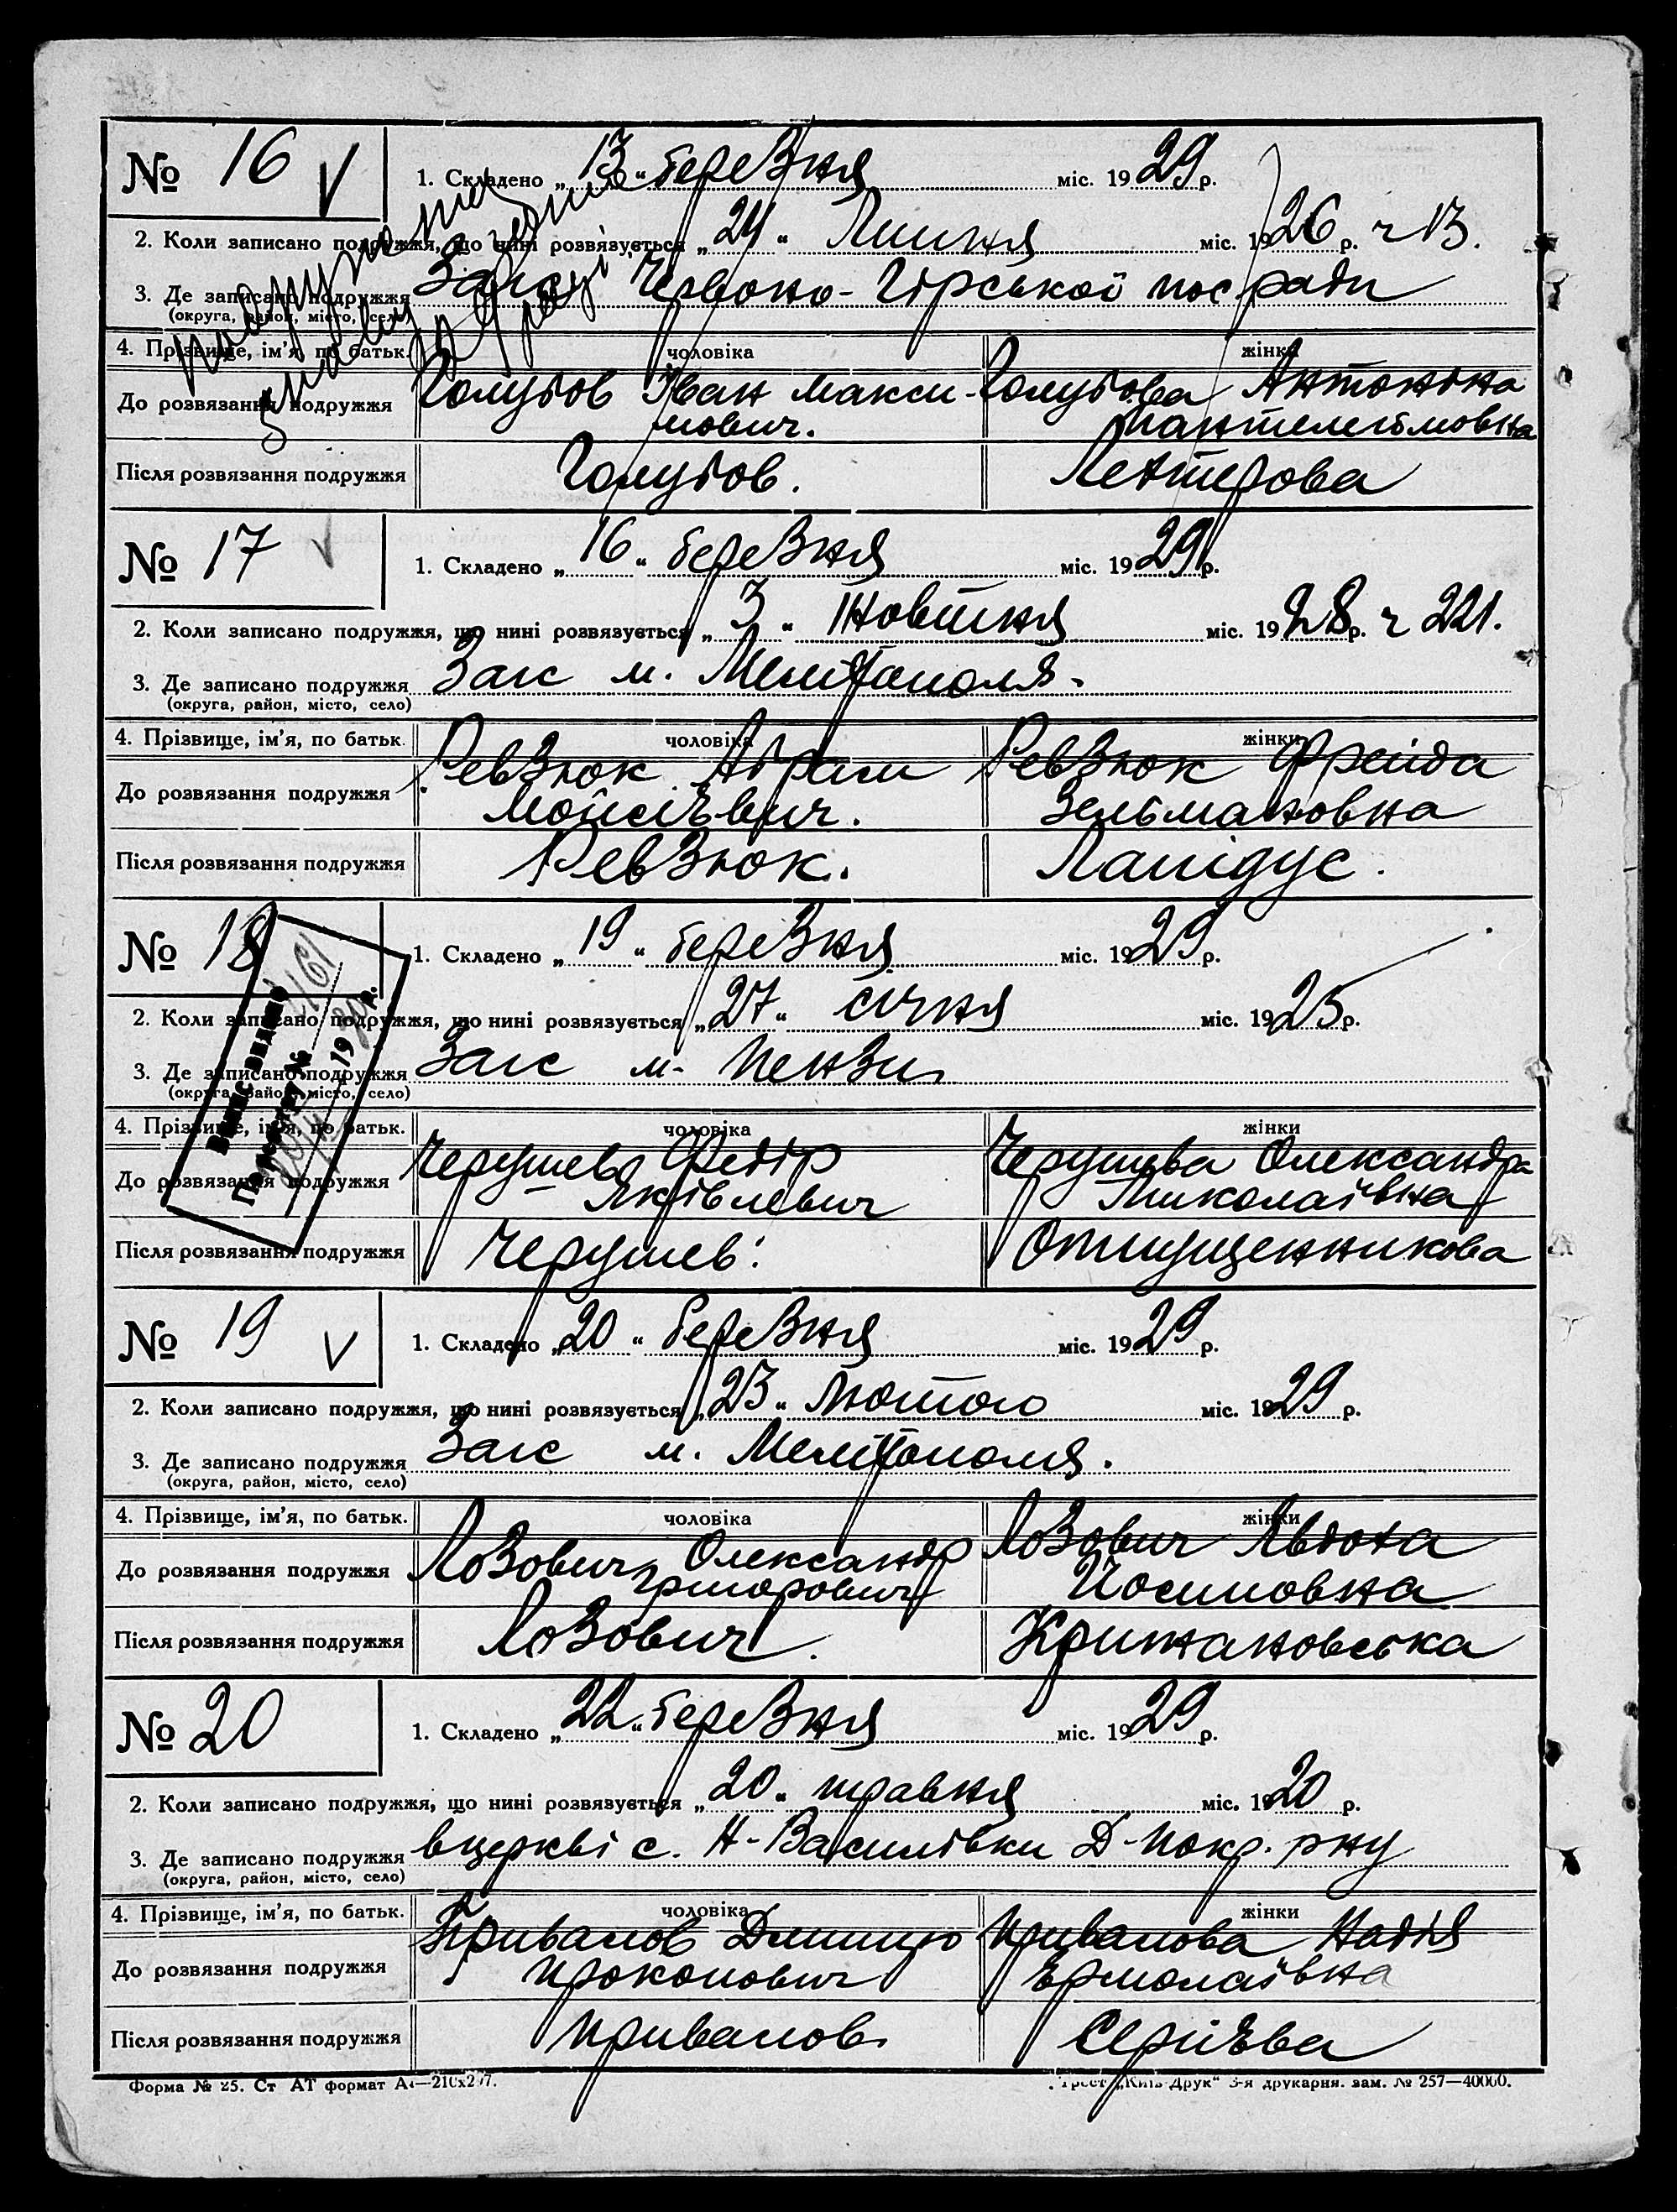 № 16 V
1. Складено „13“ березня міс. 1929 р.
2. Коли записано подружжя, що нині розвязується „24“ Липня міс. 1926 р. ч 13.
3. Де записано подружжя Загс Червоно-Гірської пос.ради
(округа, район, місто, село)
4. Прізвище, ім'я, по батьк. чоловіка жінки
До розвязання подружжя Голубов Іван Макси- Голубова Антоніна
мович. Пантелеймовна
Після розвязання подружжя Голубов.
№ 17 V
1. Складено „16“ березня міс. 1929 р.
2. Коли записано подружжя, що нині розвязується „3“ Жовтня міс. 1928 р. ч 221.
3. Де записано подружжя Загс м. Мелітополя.
(округа, район, місто, село)
4. Прізвище, ім'я, по батьк. чоловіка жінки
До розвязання подружжя Ревзюк Абрам Ревзюк Фреида
Мойсієвич. Зельмановна
Після розвязання подружжя Ревзюк. Лапідус.
№ 18
1. Складено „19“ березня міс. 1929 р.
2. Коли записано подружжя, що нині розвязується „27“ січня міс. 1925 р.
3. Де записано подружжя Загс м. Пензи
(округа, район, місто, село)
4. Прізвище, ім'я, по батьк. чоловіка жінки
До розвязання подружжя Черушев Федір Черушева Олександра
Яківлевич Миколаївна
Після розвязання подружжя Черушев. Отпущенникова
№ 19 V
1. Складено „20“ березня міс. 1929 р.
2. Коли записано подружжя, що нині розвязується „23“ Лютого міс. 1929 р.
3. Де записано подружжя Загс м. Мелітополя.
(округа, район, місто, село)
4. Прізвище, ім'я, по батьк. чоловіка жінки
До розвязання подружжя Лозович Олександр Лозович Явдоха
Григорович Йосиповна
Після розвязання подружжя Лозович. Крижановська
№ 20
1. Складено „22“ березня міс. 1929 р.
2. Коли записано подружжя, що нині розвязується „20“ травня міс. 1920 р.
3. Де записано подружжя в церкві с. Н-Василівки Д-Покр. рну
(округа, район, місто, село)
4. Прізвище, ім'я, по батьк. чоловіка жінки
До розвязання подружжя Привалов Дмитро Привалова Надія
Прокопович Єрмолаївна
Після розвязання подружжя Привалов Сергієва
Форма № 25. Ст АТ формат А4—210х297. Трест „Київ-Друк“ 3-я друкарня. зам. № 257—40000.